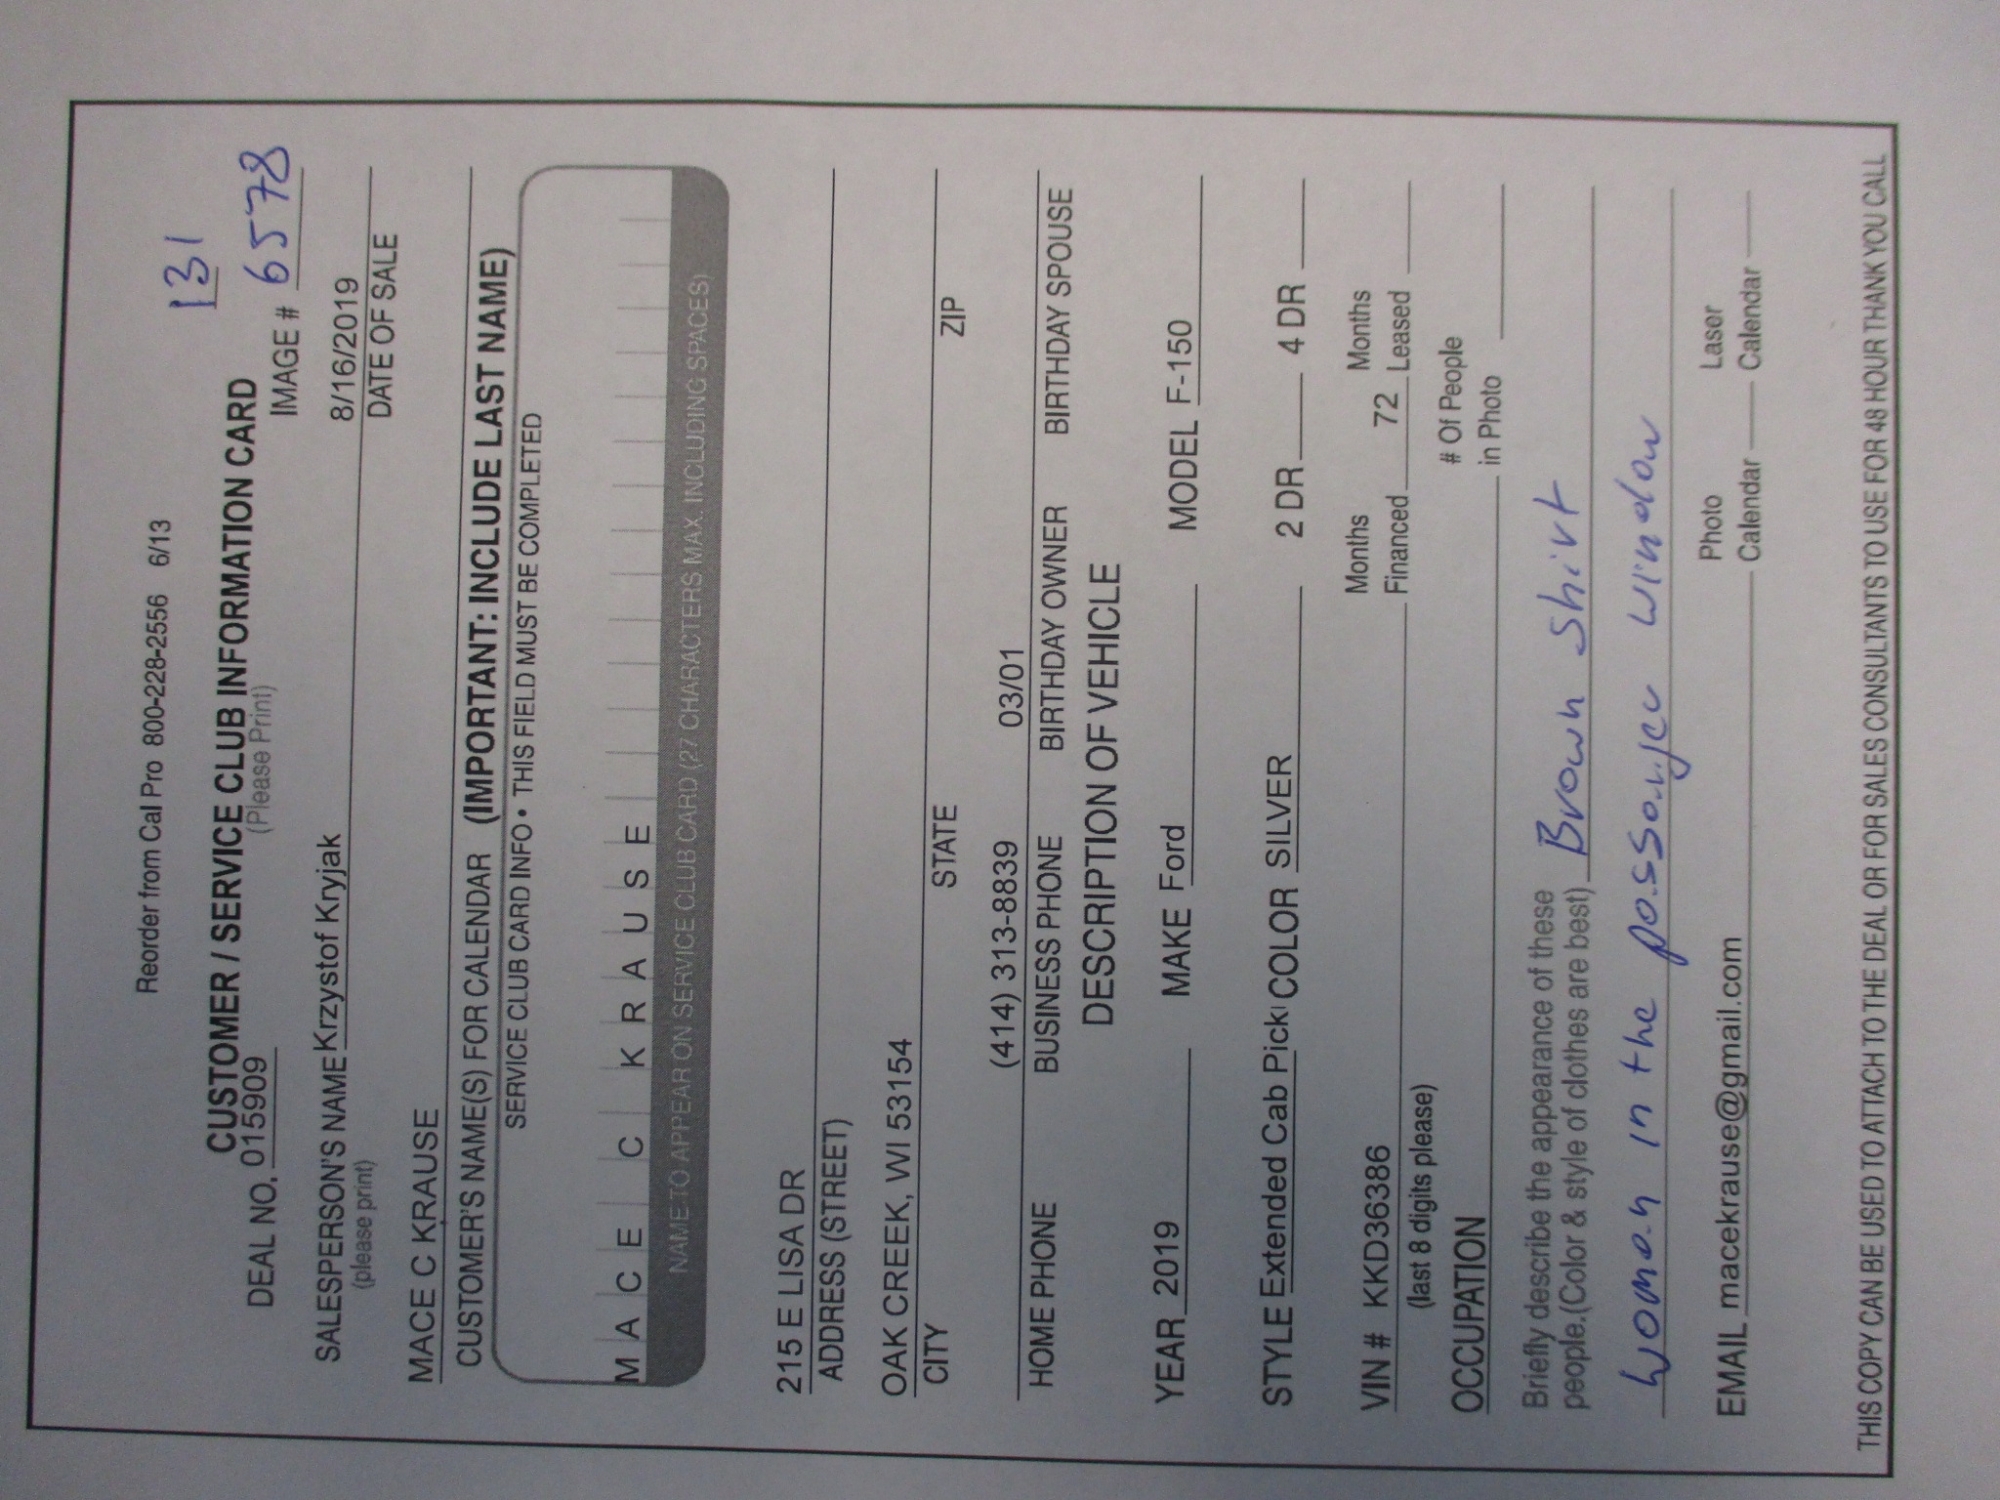 Reorder from Cal Pro 800-228-2556 6/13
131
CUSTOMER / SERVICE CLUB INFORMATION CARD
(Please Print)
DEAL NO. 015909
IMAGE # 6578
SALESPERSON'S NAME Krzystof Kryjak
(please print)
8/16/2019
DATE OF SALE
MACE C KRAUSE
CUSTOMER'S NAME(S) FOR CALENDAR (IMPORTANT: INCLUDE LAST NAME)
SERVICE CLUB CARD INFO • THIS FIELD MUST BE COMPLETED
MACE C KRAUSE
NAME TO APPEAR ON SERVICE CLUB CARD (27 CHARACTERS MAX. INCLUDING SPACES)
215 E LISA DR
ADDRESS (STREET)
OAK CREEK, WI 53154
CITY STATE ZIP
(414) 313-8839 03/01
HOME PHONE BUSINESS PHONE BIRTHDAY OWNER BIRTHDAY SPOUSE
DESCRIPTION OF VEHICLE
YEAR 2019 MAKE Ford MODEL F-150
STYLE Extended Cab Picki COLOR SILVER 2 DR 4 DR
VIN # KKD36386 Months Financed 72 Months Leased
(last 8 digits please)
OCCUPATION # Of People in Photo
Briefly describe the appearance of these
people.(Color & style of clothes are best) Brown shirt
woman in the passanger window
EMAIL macekrause@gmail.com Photo Calendar Laser Calendar
THIS COPY CAN BE USED TO ATTACH TO THE DEAL OR FOR SALES CONSULTANTS TO USE FOR 48 HOUR THANK YOU CALL